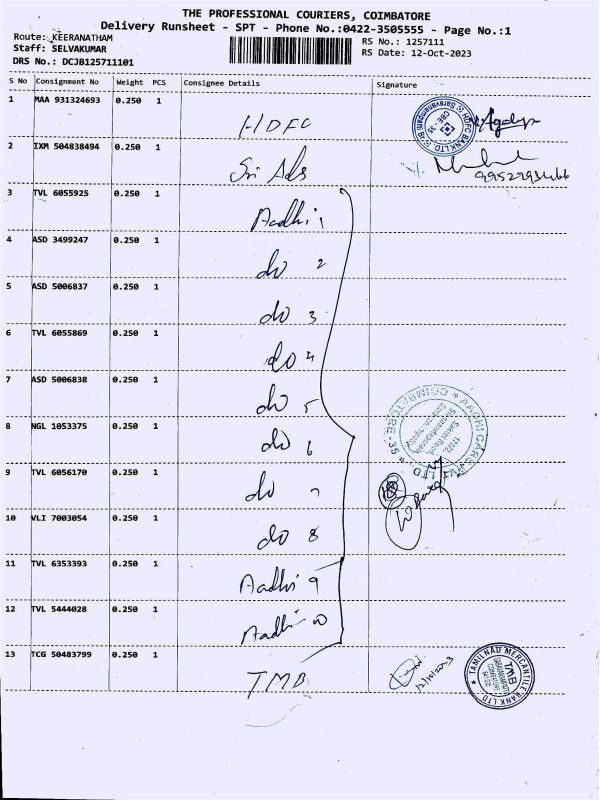 THE PROFESSIONAL COURIERS, COIMBATORE
Delivery Runsheet - SPT - Phone No.:0422-3505555 - Page No.:1
Route: KEERANATHAM
Staff: SELVAKUMAR
DRS No.: DCJB125711101
RS No.: 1257111
RS Date: 12-Oct-2023
S No Consignment No Weight PCS Consignee Details Signature
1 MAA 931324693 0.250 1 HDFC
HDFC BANK LTD
CBE - 35
2 IXM 504838494 0.250 1 Sri Ads
3 TVL 6055925 0.250 1 Aadhi 1
4 ASD 3499247 0.250 1 do 2
5 ASD 5006837 0.250 1 do 3
6 TVL 6055869 0.250 1 do 4
7 ASD 5006838 0.250 1 do 5
8 NGL 1053375 0.250 1 do 6
9 TVL 6056170 0.250 1 do 7
10 VLI 7003054 0.250 1 do 8
11 TVL 6353393 0.250 1 Aadhi 9
12 TVL 5444028 0.250 1 Aadhi 10
13 TCG 50483799 0.250 1 TMB
TAMILNAD MERCANTILE BANK LTD
TMB